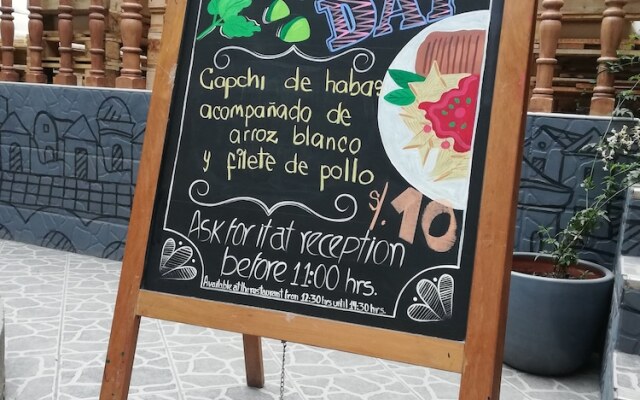 DAY
Capchi de habas
acompañado de
arroz blanco
y filete de pollo
S/. 10
Ask for it at reception
before 11:00 hrs.
Available at the restaurant from 12:30 hrs until 14:30 hrs.